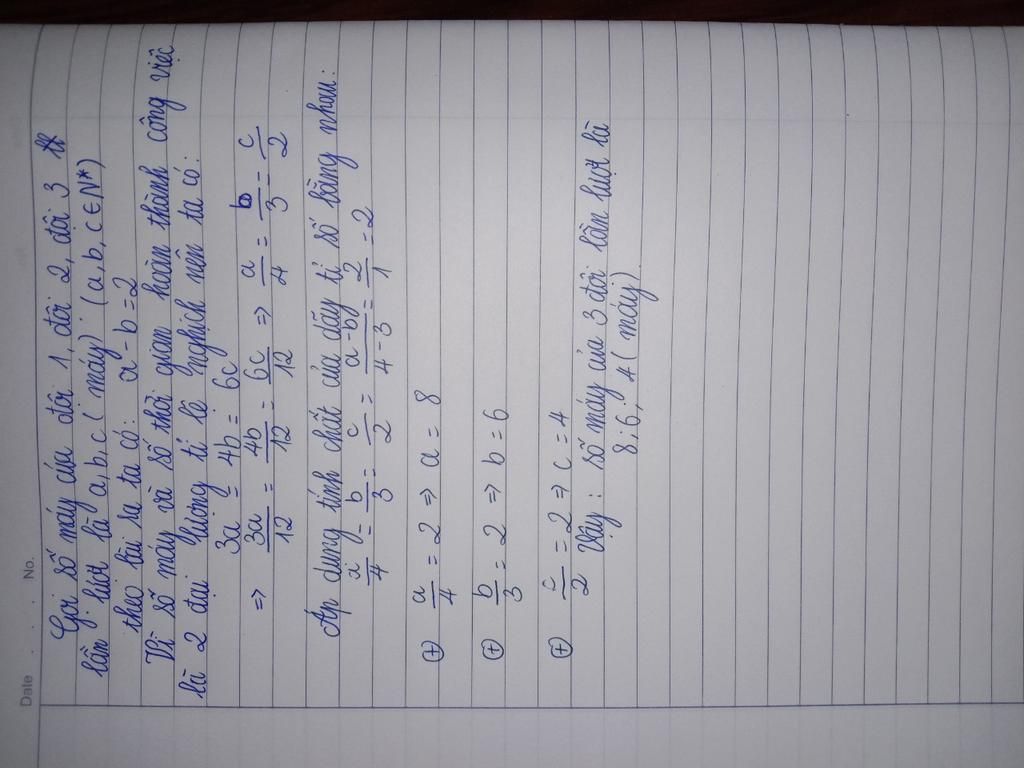 Date . . . No.
Gọi số máy của đội 1, đội 2, đội 3
lần lượt là a, b, c ( máy) (a, b, c ∈ N*)
theo bài ra ta có: a - b = 2
Vì số máy và số thời gian hoàn thành công việc
là 2 đại lượng tỉ lệ nghịch nên ta có:
3a = 4b = 6c
=> 3a/12 = 4b/12 = 6c/12 => a/4 = b/3 = c/2
Áp dụng tính chất của dãy tỉ số bằng nhau:
a/4 = b/3 = c/2 = a-b/4-3 = 2/1 = 2
⊕ a/4 = 2 => a = 8
⊕ b/3 = 2 => b = 6
⊕ c/2 = 2 => c = 4
Vậy : số máy của 3 đội lần lượt là
8; 6; 4 ( máy)